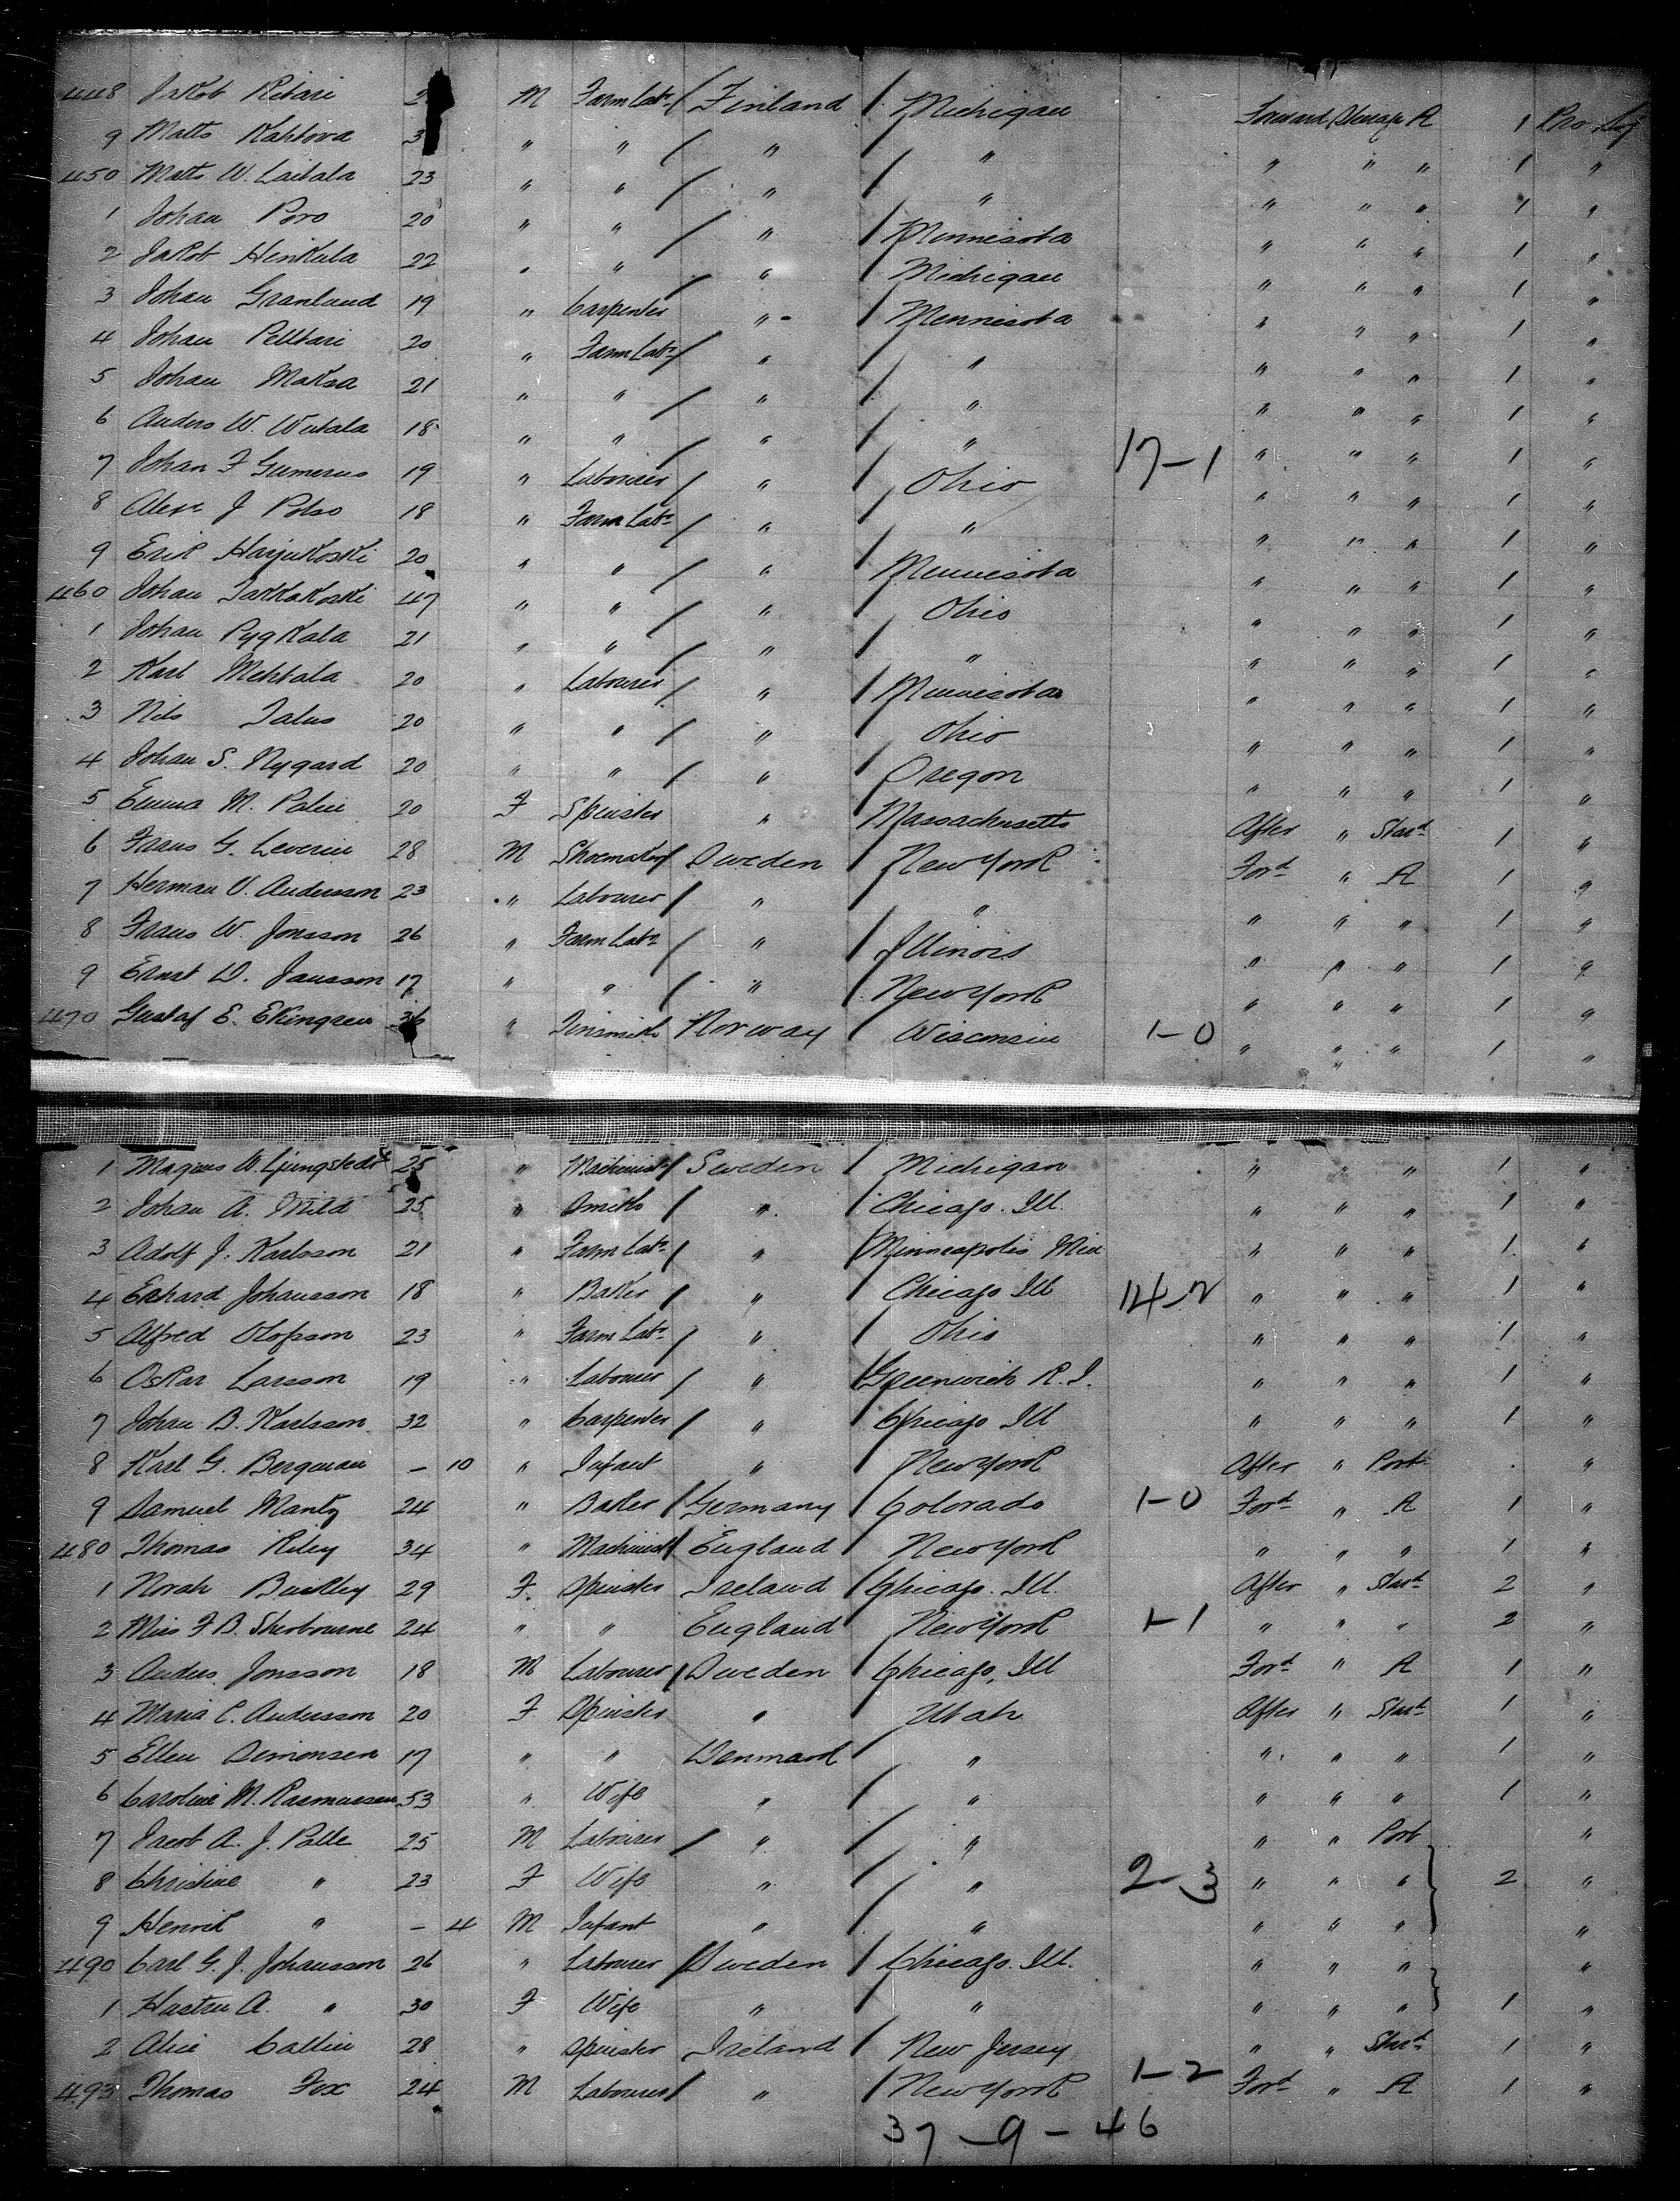 448 Jakob Ritari 2 M Farm Labr Finland Michigan Forward Steerage A 1 Pro Log
9 Matts Kahtova 3 " " " " " " " 1 "
450 Matts W. Laitala 23 " " " " " " " 1 "
1 Johan Poro 20 " " " Minnesota " " " 1 "
2 Jakob Heinkula 22 " " " Michigan " " " 1 "
3 Johan Granlund 19 " Carpenter " Minnesota " " " 1 "
4 Johan Pelltari 20 " Farm Labr " " " " " 1 "
5 Johan Maksa 21 " " " " " " " 1 "
6 Anders W. Wutala 18 " " " " " " " 1 "
7 Johan F Gumerus 19 " Labourer " Ohio 17-1 " " " 1 "
8 Alexr J Polso 18 " Farm Labr " " " " " 1 "
9 Erik Harjukoski 20 " " " Minnesota " " " 1 "
460 Johan Takkakoski 47 " " " Ohio " " " 1 "
1 Johan Pygkala 21 " " " " " " " 1 "
2 Karl Mehtala 20 " Labourer " Minnesota " " " 1 "
3 Nils Talus 20 " " " Ohio " " " 1 "
4 Johan S. Nygard 20 " " " Oregon " " " 1 "
5 Emma M. Palin 20 F Spinster " Massachusetts After " Stard 1 "
6 Frans G. Leverin 28 M Shoemaker Sweden New York Ford " A 1 "
7 Herman V. Andersson 23 " Labourer " " " " " 1 "
8 Frans W. Jonsson 26 " Farm Labr " Illinois " " " 1 "
9 Ernst D. Jansson 17 " " " New York " " " 1 "
470 Gustaf E. Ekingren 36 " Tinsmith Norway Wisconsin 1-0 " " " 1 "
1 Magnus W. Ljungstedt 25 " Machinist Sweden Michigan " " " 1 "
2 Johan A. Mild 25 " Smith " Chicago. Ill. " " " 1 "
3 Adolf J. Karlsson 21 " Farm Labr " Minneapolis Min " " " 1 "
4 Erhard Johansson 18 " Baker " Chicago Ill 14-2 " " " 1 "
5 Alfred Olofsson 23 " Farm Labr " Ohio " " " 1 "
6 Oskar Larsson 19 " Labourer " Greenwich R. I. " " " 1 "
7 Johan B. Karlsson 32 " Carpenter " Chicago Ill " " " 1 "
8 Karl G. Bergman - 10 " Infant " New York After " Port "
9 Samuel Mantz 24 " Baker Germany Colorado 1-0 Ford " A 1 "
480 Thomas Riley 34 " Machinist England New York " " " 1 "
1 Norah Buckley 29 F. Spinster Ireland Chicago. Ill. After " Stard 2 "
2 Miss F B. Sherbourne 24 " " England New York 1-1 " " " 2 "
3 Anders Jonsson 18 M Labourer Sweden Chicago, Ill Ford " A 1 "
4 Maria C. Andersson 20 F Spinster " Utah After " Stard 1 "
5 Ellen Simonsen 17 " " Denmark " " " " 1 "
6 Caroline M. Rasmussen 53 " Wife " " " " " 1 "
7 Jacob A. J. Palle 25 M Labourer " " " " Port "
8 Christine " 23 F Wife " " 2-3 " " " 2 "
9 Henrik " - 4 M Infant " " " " " "
490 Carl G. J. Johansson 26 " Labourer Sweden Chicago. Ill. " " " "
1 A. " 30 F Wife " " " " " 1 "
2 Alice Callin 28 " Spinster Ireland New Jersey " " Stard 1 "
493 Thomas Fox 24 M Labourer " New York 1-2 Ford " A 1 "
37-9-46